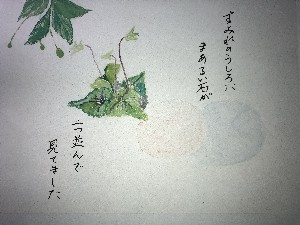 すみれのうしろに
まあるい石が
二つ遊んで
見てました